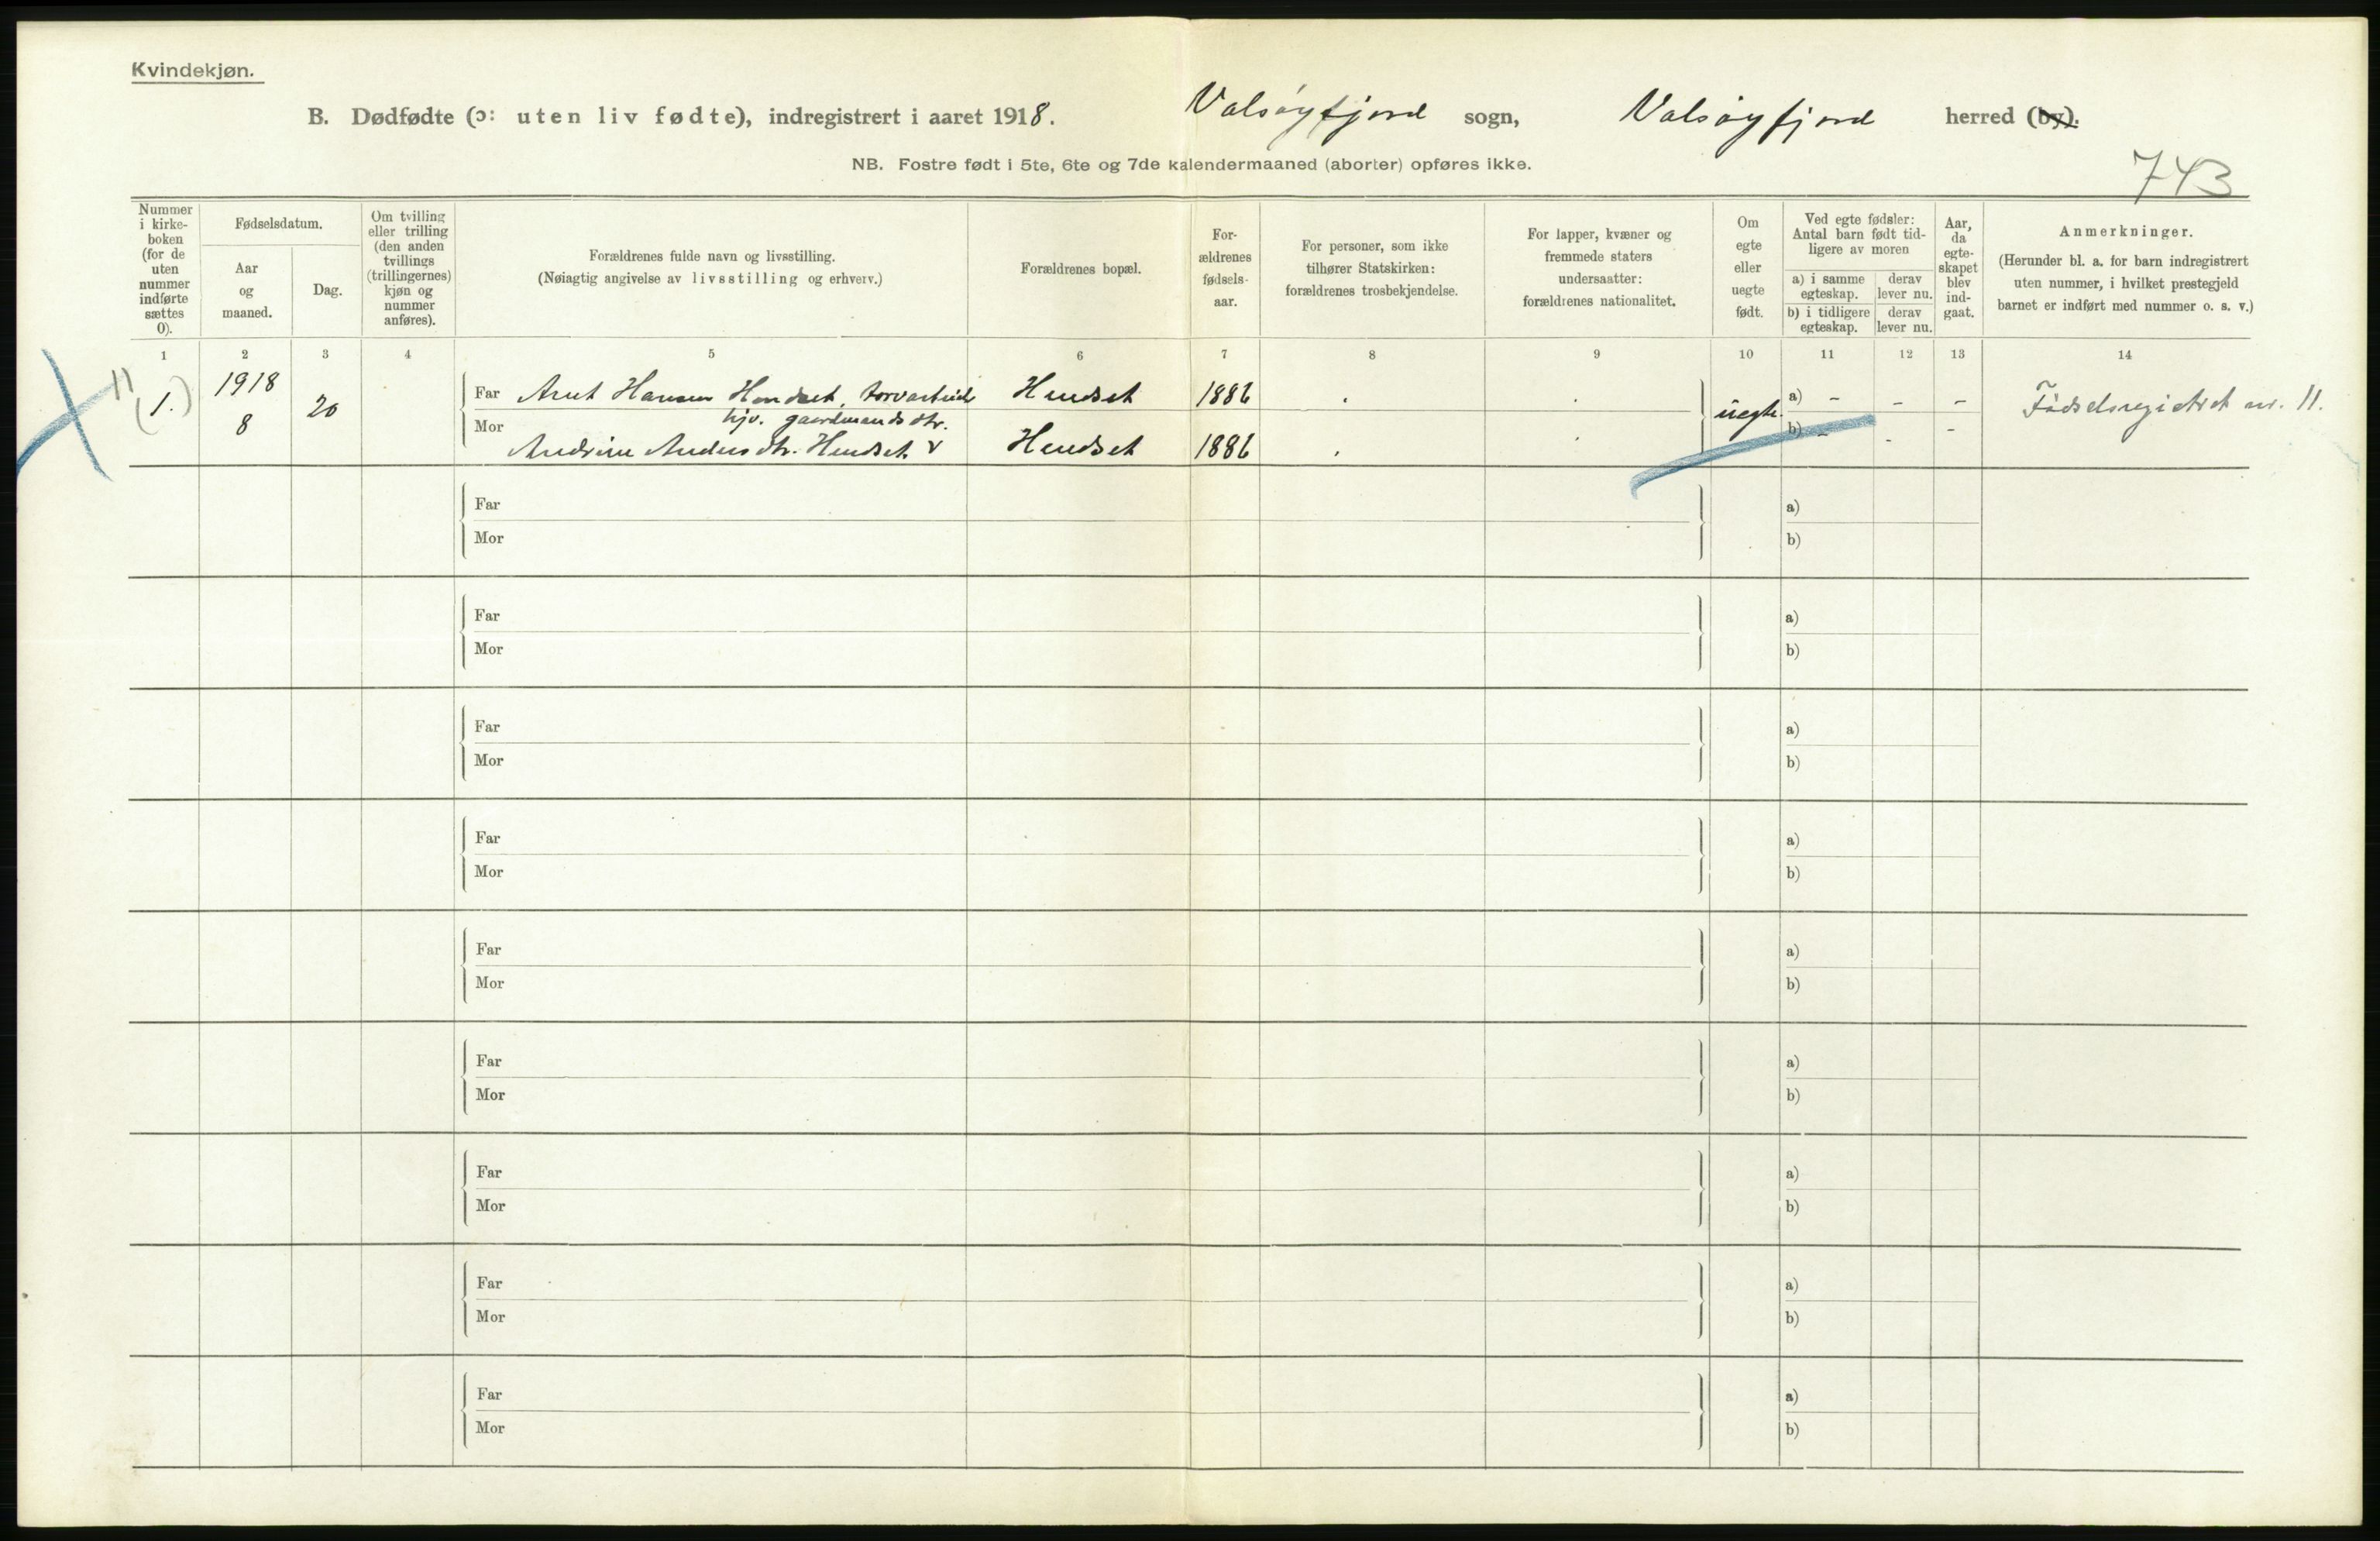 Kvindekjøn.
B. Dødfødte (ɔ: uten liv fødte), indregistrert i aaret 1918. Valsøyfjord sogn, Valsøyfjord herred (by).
NB. Fostre født i 5te, 6te og 7de kalendermaaned (aborter) opføres ikke.
743
Nummer
i kirke-
boken
(for de
uten
nummer
indførte
sættes
0).
Fødselsdatum.
Aar
og
maaned.
Dag.
Om tvilling
eller trilling
(den anden
tvillings
(trillingernes)
kjøn og
nummer
anføres).
Forældrenes fulde navn og livsstilling.
(Nøiagtig angivelse av livsstilling og erhverv.)
Forældrenes bopæl.
For-
ældrenes
fødsels-
aar.
For personer, som ikke
tilhører Statskirken:
forældrenes trosbekjendelse.
For lapper, kvæner og
fremmede staters
undersaatter:
forældrenes nationalitet.
Om
egte
eller
uegte
født.
Ved egte fødsler:
Antal barn født tid-
ligere av moren
a) i samme
egteskap.
derav
lever nu.
b) i tidligere
egteskap.
derav
lever nu.
Aar,
da
egte-
skapet
blev
ind-
gaat.
Anmerkninger.
(Herunder bl. a. for barn indregistrert
uten nummer, i hvilket prestegjeld
barnet er indført med nummer o. s. v.)
1 2 3 4 5 6 7 8 9 10 11 12 13 14
11
(1.) 1918 8 20
Far Arnt Hansen Hendset, Hendset 1886 uegte. a) - - - Fødselsregistret nr. 11.
hjv. gaardmandsdtr.
Mor Andrine Andersdtr. Hendset Hendset 1886 b) - - -
Far a)
Mor b)
Far a)
Mor b)
Far a)
Mor b)
Far a)
Mor b)
Far a)
Mor b)
Far a)
Mor b)
Far a)
Mor b)
Far a)
Mor b)
Far a)
Mor b)